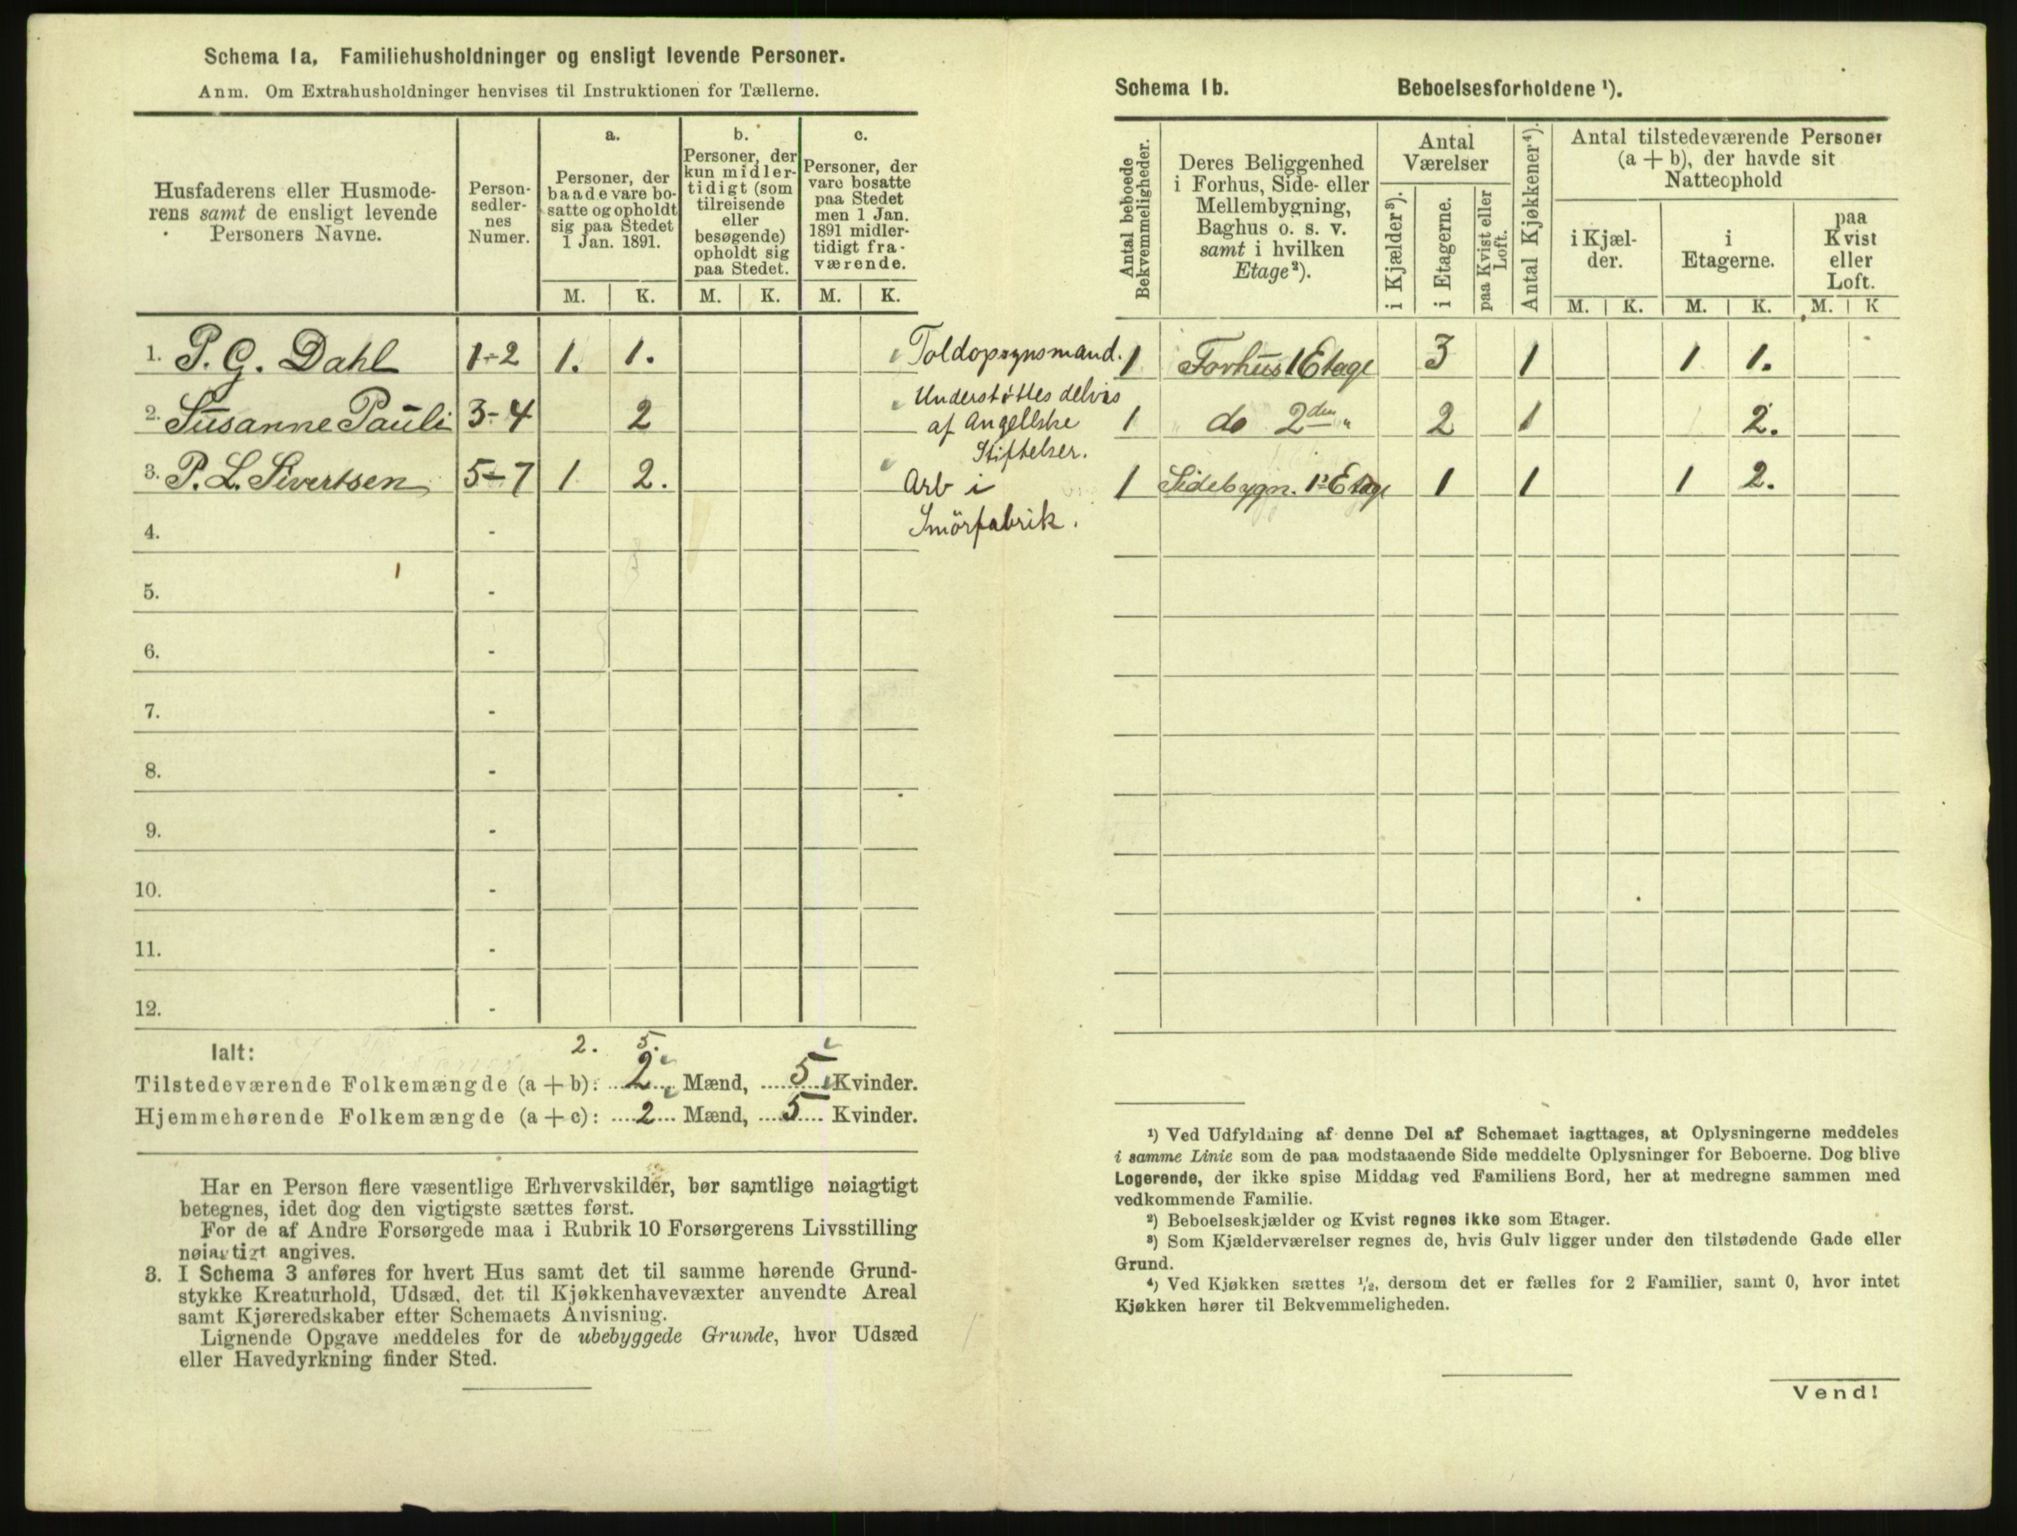 Schema 1a. Familiehusholdninger og ensligt levende Personer.
Anm. Om Extrahusholdninger henvises til Instruktionen for Tællerne.
Husfaderens eller Husmode-
rens samt de ensligt levende
Personers Navne.
Person-
sedler-
nes
Numer.
a.
Personer, der
baade vare bo-
satte og opholdt
sig paa Stedet
1 Jan. 1891.
M. K.
b.
Personer, der
kun midler-
tidigt (som
tilreisende
eller
besøgende)
opholdt sig
paa Stedet.
M. K.
c.
Personer, der
vare bosatte
paa Stedet
men 1 Jan.
1891 midler-
tidigt fra-
værende.
M. K.
1. P. G. Dahl 1-2 1. 1. Toldopsynsmand.
2. Susanne Pauli 3-4 2 Understøttes delvis
af Angellske
Stiftelser.
3. P. L. Sivertsen 5-7 1 2. Arb i
Smörfabrik.
4. -
5. -
6. -
7. -
8. -
9. -
10. -
11. -
12. -
Ialt: 2. 5.
Tilstedeværende Folkemængde (a + b): 2 Mænd, 5 Kvinder.
Hjemmehørende Folkemængde (a + c): 2 Mænd, 5 Kvinder.
Har en Person flere væsentlige Erhvervskilder, bør samtlige nøiagtigt
betegnes, idet dog den vigtigste sættes først.
For de af Andre Forsørgede maa i Rubrik 10 Forsørgerens Livsstilling
nøiagtigt angives.
3. I Schema 3 anføres for hvert Hus samt det til samme hørende Grund-
stykke Kreaturhold, Udsæd, det til Kjøkkenhavevæxter anvendte Areal
samt Kjøreredskaber efter Schemaets Anvisning.
Lignende Opgave meddeles for de ubebyggede Grunde, hvor Udsæd
eller Havedyrkning finder Sted.
Schema 1b. Beboelsesforholdene ¹).
Antal beboede
Bekvemmeligheder.
Deres Beliggenhed
i Forhus, Side- eller
Mellembygning,
Baghus o. s. v.
samt i hvilken
Etage²).
Antal
Værelser
i Kjælder³).
i Etagerne.
paa Kvist eller
Loft.
Antal Kjøkkener⁴).
Antal tilstedeværende Personer
(a + b), der havde sit
Natteophold
i Kjæl-
der.
i
Etagerne.
paa
Kvist
eller
Loft.
M. K. M. K. M. K
1 Forhus 1 Etage 3 1 1 1.
1 do 2den " 2 1 2.
1 Sidebygn. 1s Etage 1 1 1 2.
¹) Ved Udfyldning af denne Del af Schemaet iagttages, at Oplysningerne meddeles
i samme Linie som de paa modstaaende Side meddelte Oplysninger for Beboerne. Dog blive
Logerende, der ikke spise Middag ved Familiens Bord, her at medregne sammen med
vedkommende Familie.
²) Beboelseskjælder og Kvist regnes ikke som Etager.
³) Som Kjælderværelser regnes de, hvis Gulv ligger under den tilstødende Gade eller
Grund.
⁴) Ved Kjøkken sættes 1/2, dersom det er fælles for 2 Familier, samt 0, hvor intet
Kjøkken hører til Bekvemmeligheden.
Vend!